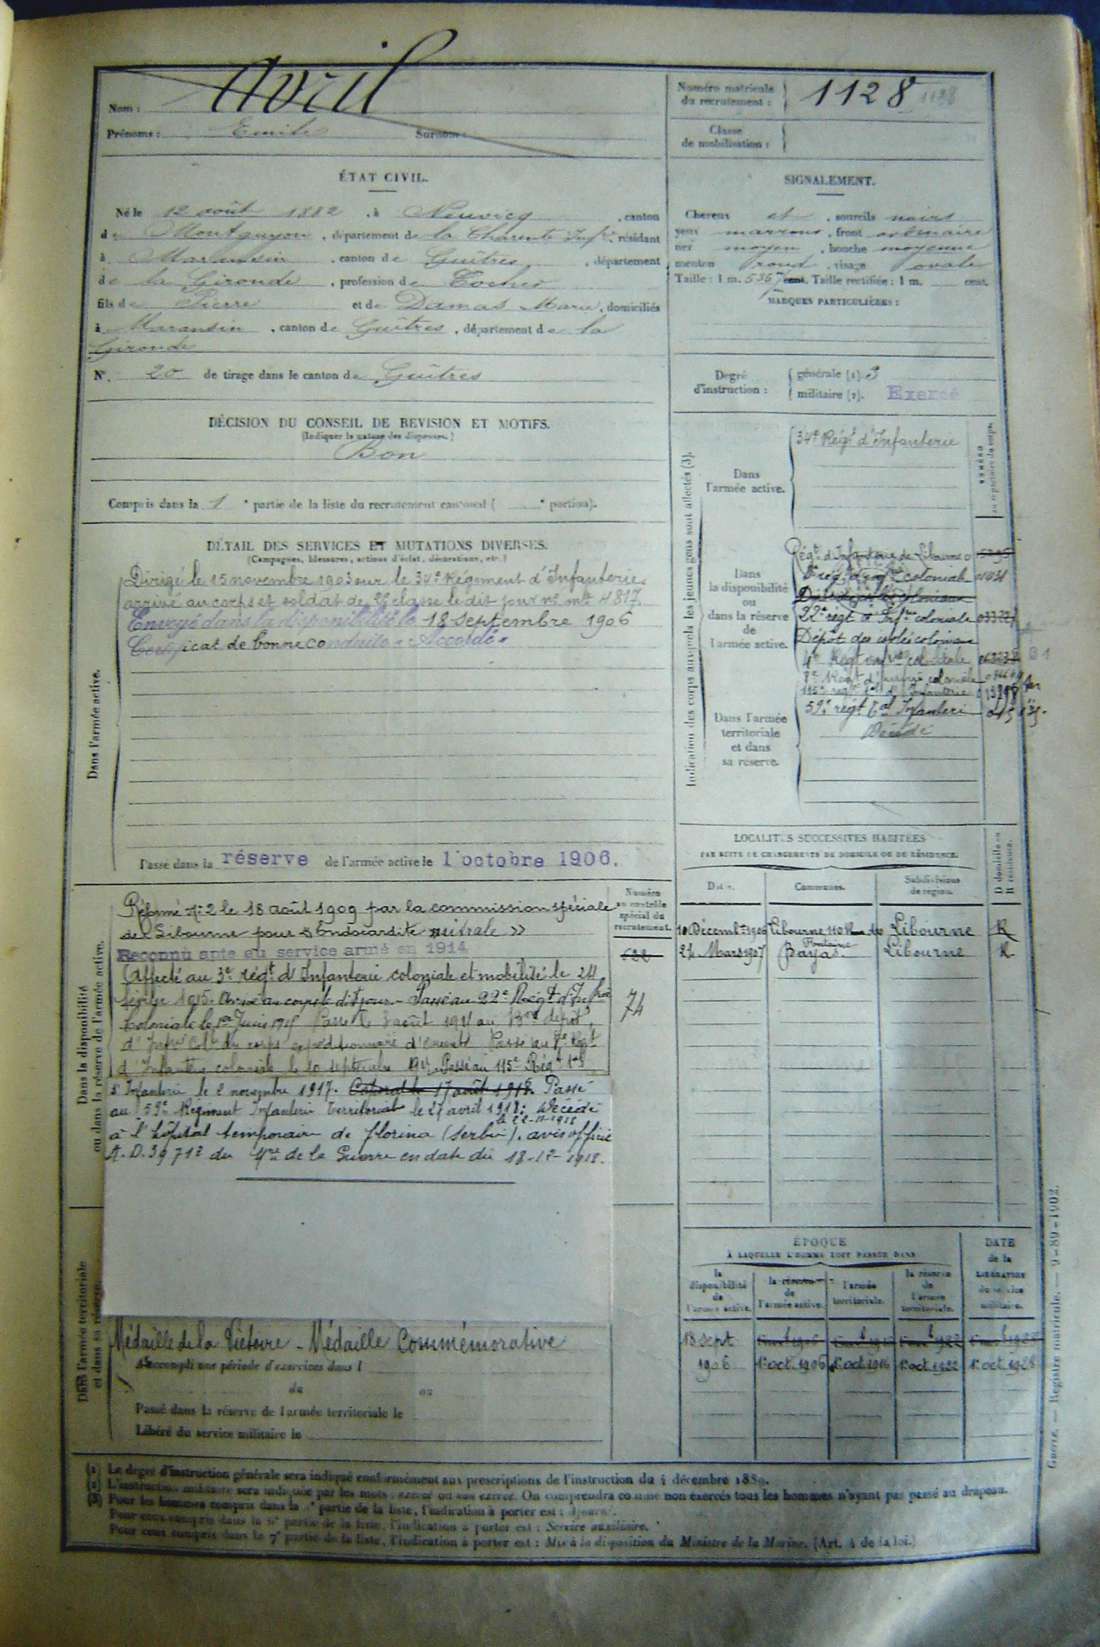 Nom : Avril
Prénoms : Emile Surnom :
Numéro matricule du recrutement : 1128 1128
Classe de mobilisation :
ÉTAT CIVIL.
Né le 12 août 1882, à Neuvicq, canton
de Montguyon, département de la Charente Infre, résidant
à Maransin, canton de Guîtres, département
de la Gironde, profession de Cocher
fils de Pierre et de Damas Marie, domiciliés
à Maransin, canton de Guîtres, département de la
Gironde
N° 20 de tirage dans le canton de Guîtres
SIGNALEMENT.
Cheveux et, sourcils noirs
yeux marrons, front ordinaire
nez moyen, bouche moyenne
menton rond, visage ovale
Taille : 1 m. 536 cent. Taille rectifiée : 1 m. cent.
MARQUES PARTICULIÈRES :
Degré d'instruction : générale (1). 3
militaire (2). Exercé
DÉCISION DU CONSEIL DE REVISION ET MOTIFS.
(Indiquer la nature des dispenses.)
Bon
Compris dans la 1e partie de la liste du recrutement cantonal ( e portion).
DÉTAIL DES SERVICES ET MUTATIONS DIVERSES.
(Campagnes, blessures, actions d'éclat, décorations, etc.)
Dans l'armée active.
Dirigé le 15 novembre 1903 sur le 34e Régiment d'Infanterie
arrivé au corps et soldat de 2e classe le dit jour no mle 4817.
Envoyé dans la disponibilité le 18 Septembre 1906
Certificat de bonne conduite "Accordé"
Passé dans la réserve de l'armée active le 1 octobre 1906.
Indication des corps auxquels les jeunes gens sont affectés (3).
Dans l'armée active.
34e Régt d'Infanterie
Dans la disponibilité ou dans la réserve de l'armée active.
Régt d'Infanterie de Libourne
22e régt d'Infrie coloniale
Dépôt des isolés coloniaux
8e Régt d'Infrie coloniale
115e régt tal d'Infanterie
59e régt tal Infanterie
Décédé
Dans l'armée territoriale et dans sa réserve.
Dans la disponibilité ou dans la réserve de l'armée active.
Réformé No 2 le 18 août 1909 par la commission spéciale
de Libourne pour "Endocardite mitrale"
Reconnu apte au service armé en 1914
Affecté au 3e régt d'Infanterie coloniale et mobilisé le 24
février 1915. Arrivé au corps le dit jour. Passé au 22e Régt d'Infrie
Coloniale le 1er Juin 1915 Passé le 3 août 1917 au dépôt
d'Infrie Colle du corps expéditionnaire d'Orient Passé au Régt
d'Infanterie coloniale le 10 septembre 1917 Passé au 115e Régt tal
d'Infanterie le 2 novembre 1917. Passé
au 59e Régiment Infanterie Territoriale le 27 avril 1918; Décédé
à l'hôpital temporaire de Florina (Serbie), avis officiel
A.D. 39712 du Mre de la Guerre en date du 18-12-1918.
Numéro au contrôle spécial du recrutement.
74
LOCALITÉS SUCCESSIVES HABITÉES
PAR SUITE DE CHANGEMENTS DE DOMICILE OU DE RÉSIDENCE.
Dates. Communes. Subdivisions de région. D domicile ou R résidence.
10 Décembre 1906 Libourne 110 Rue Fontaine Libourne R
24 Mars 1907 Bayas. Libourne R
ÉPOQUE
À LAQUELLE L'HOMME DOIT PASSER DANS
la disponibilité de l'armée active.
la réserve de l'armée active.
l'armée territoriale.
la réserve de l'armée territoriale.
DATE de la LIBÉRATION du service militaire.
18 sept
1906 1er oct. 1906 1er oct 1916 1er oct 1922 1er oct. 1928
Dans l'armée territoriale et dans sa réserve.
Médaille de la Victoire - Médaille Commémorative
A accompli une période d'exercices dans l
du au
Passé dans la réserve de l'armée territoriale le
Libéré du service militaire le
(1) Le degré d'instruction générale sera indiqué conformément aux prescriptions de l'instruction du 4 décembre 1889.
(2) L'instruction militaire sera indiquée par les mots : exercé ou non exercé. On comprendra comme non exercés tous les hommes n'ayant pas passé au drapeau.
(3) Pour les hommes compris dans la partie de la liste, l'indication à porter est : Ajourné.
Pour ceux compris dans la partie de la liste, l'indication à porter est : Service auxiliaire.
Pour ceux compris dans la 7e partie de la liste, l'indication à porter est : Mis à la disposition du Ministre de la Marine. (Art. 4 de la loi.)
Guerre. — Registre matricule. — 9-89-1902.